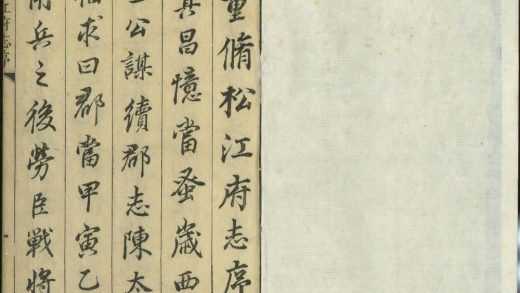 重脩松江府志序
其昌憶當蚤歲西
公謀續郡志陳太
求曰郡當甲寅乙
用兵之後勞臣戰將
江府志序